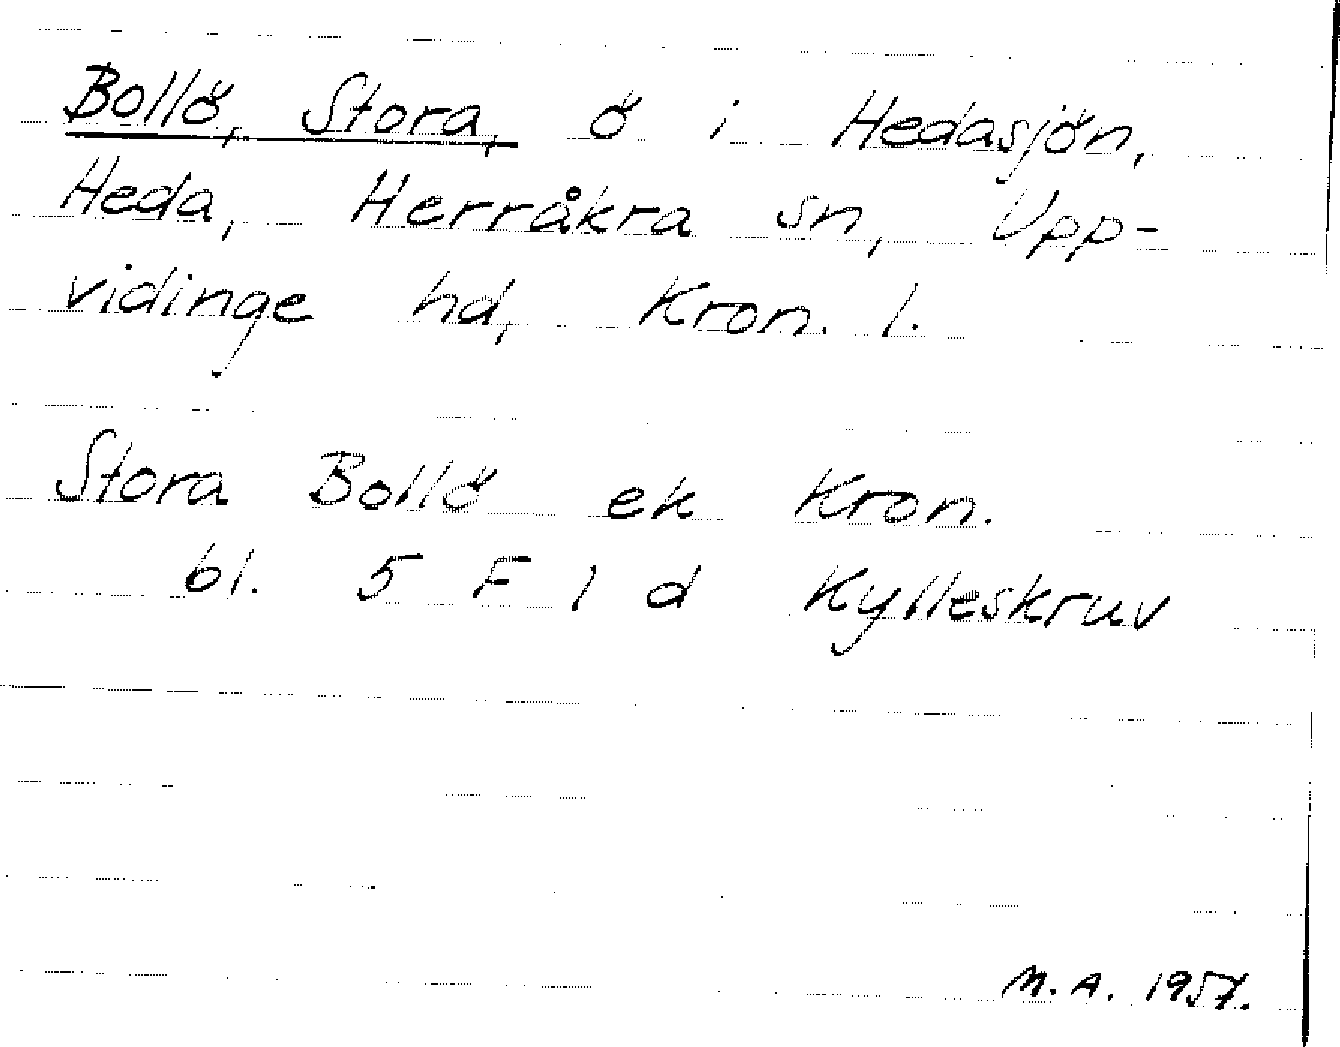 Bollö, Stora, ö i Hedasjön,
Heda, Herråkra sn, Upp-
vidinge hd, Kron. l.
Stora Bollö ek Kron.
bl. 5 F 1 d Kylleskruv
M.A. 1957.